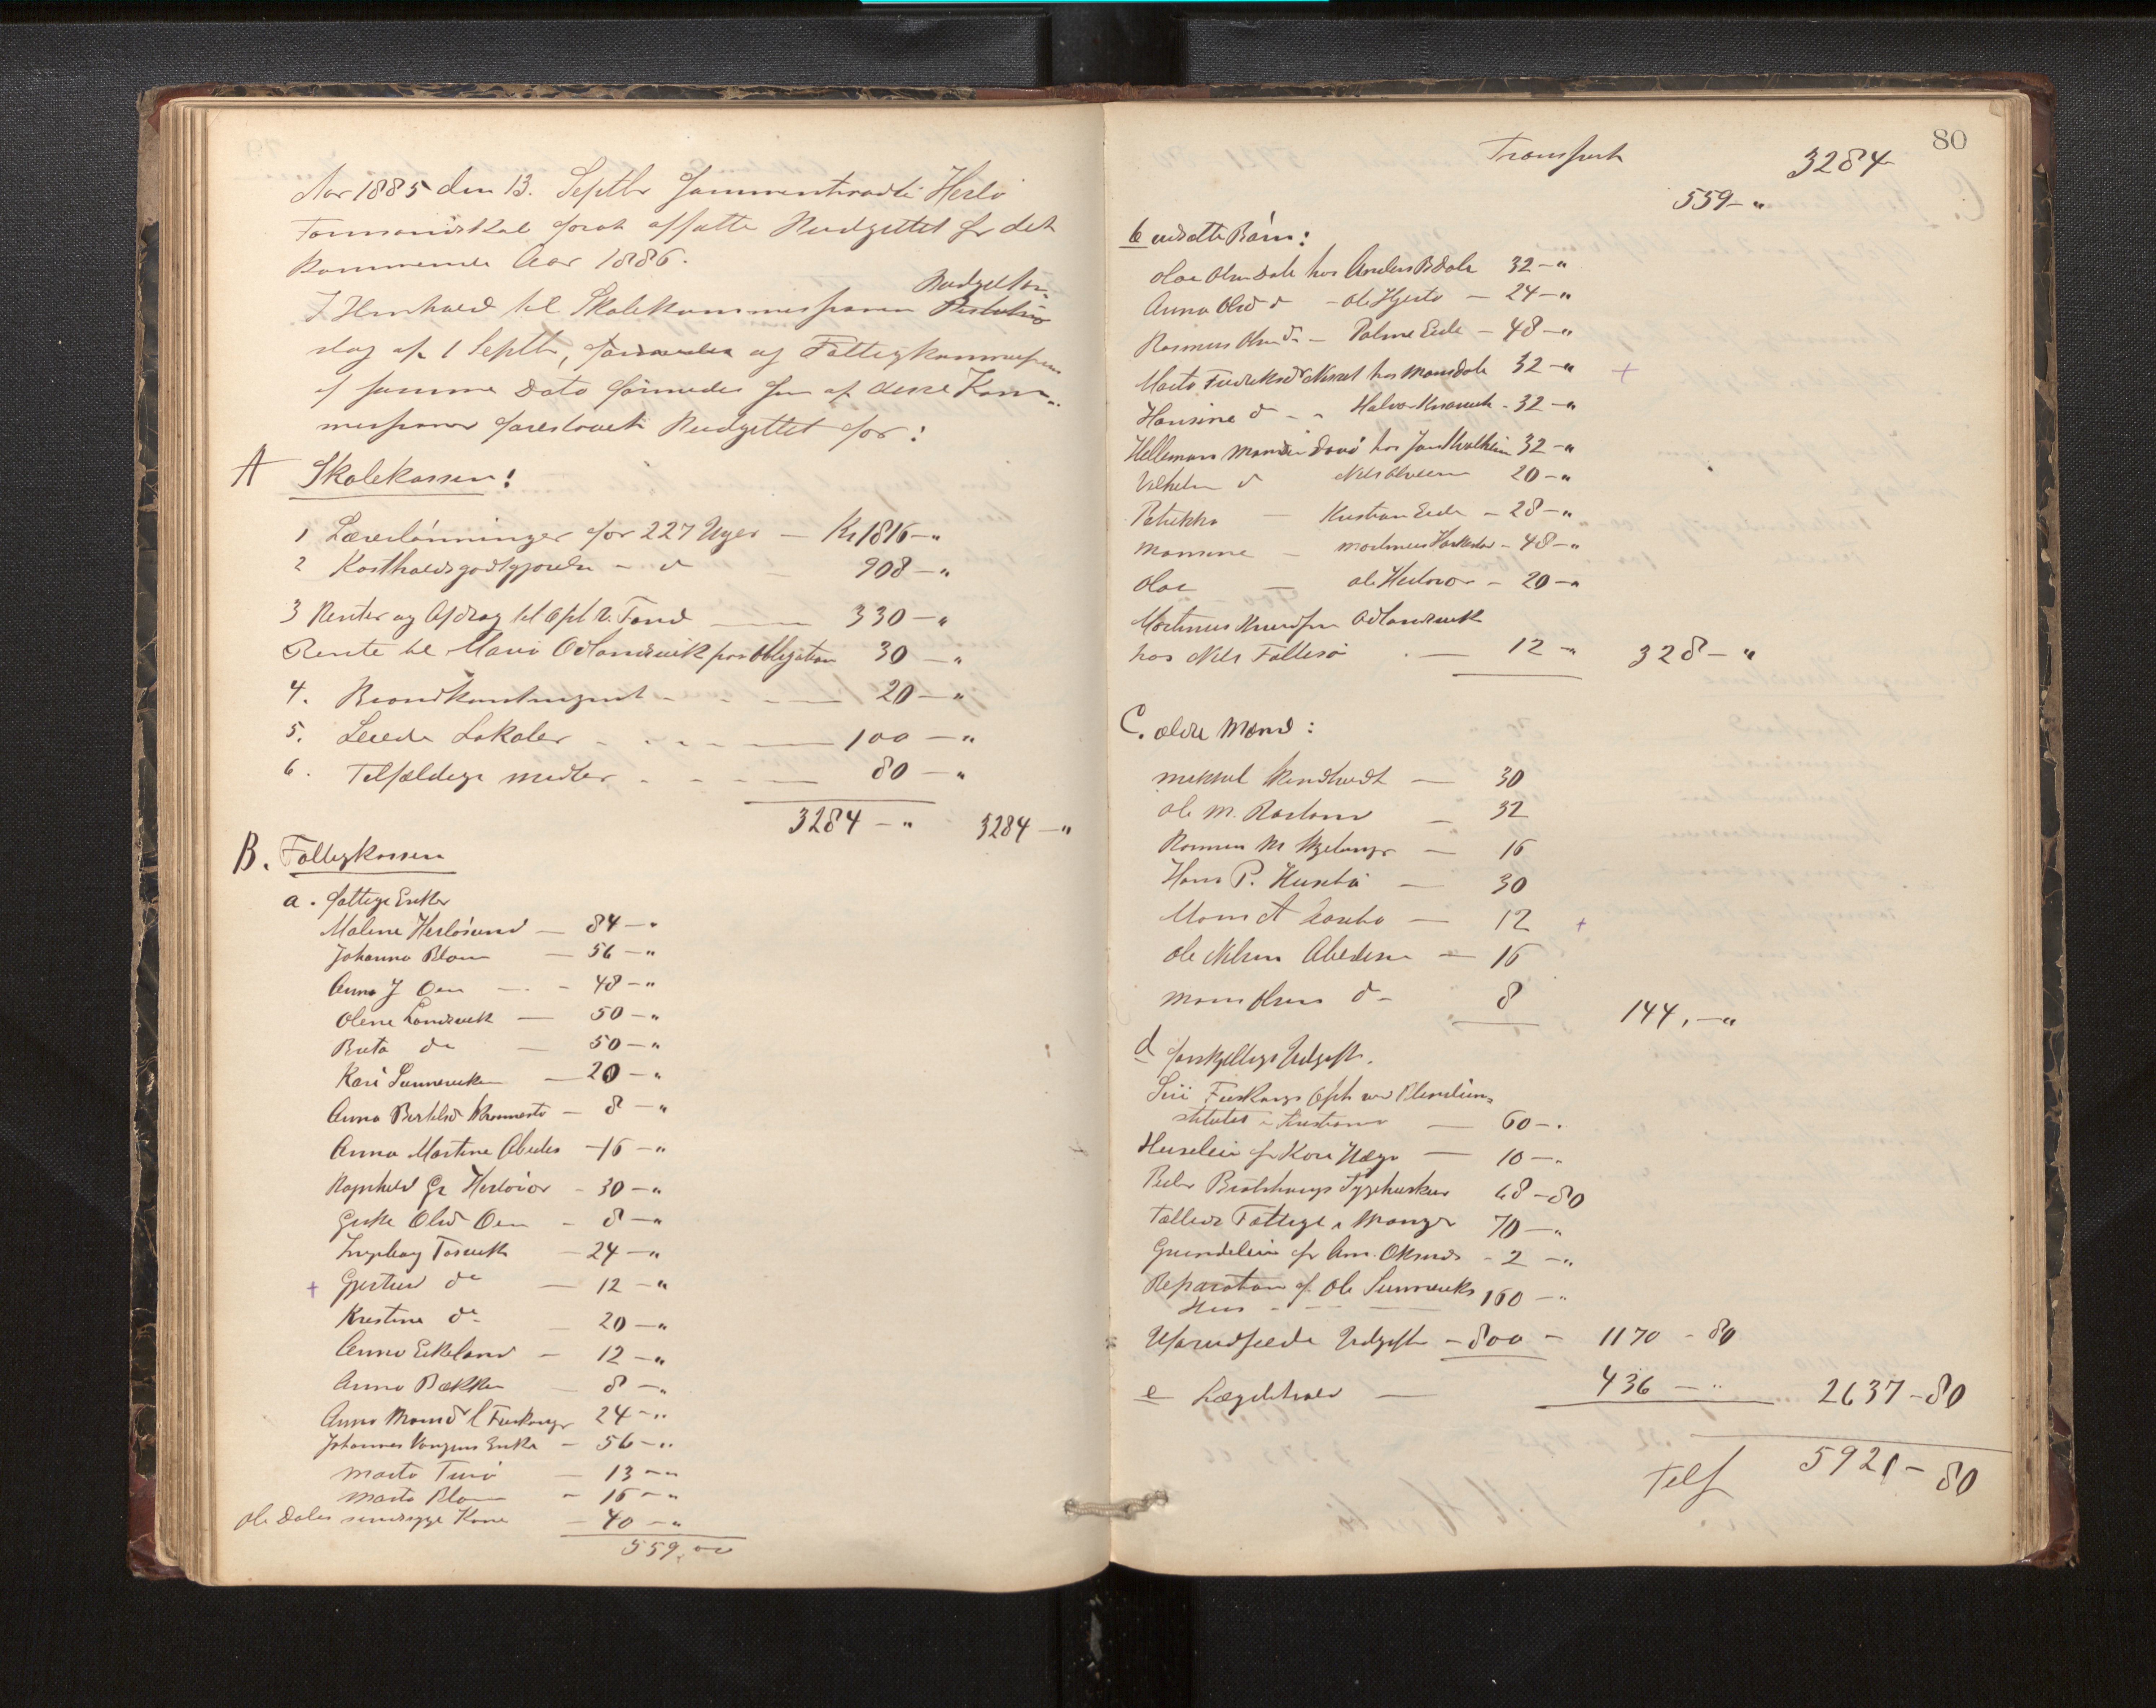 Aar 1885 den 13. Septbr sammentraadte Herlø
Formandskab forat affatte Budgettet for det
kommende Aar 1886.
I Henhold til Skolekommissionen Budgetfor-
slag af 1 Septbr, og Fattigkommissionen
af samme Dato for af disse Kom-
missioner foreslaaet Budgettet for:
A Skolekassen:
1 Lærerlønninger for 227 Uger — Kr 1816 — "
2 Kostholdsgodtgjørelse - d — 908 — "
3 Renter og Afdrag til Opl. V. Fond — 330 — "
Rente til Mons Odlandsvik paa Obligation 30 — "
4. Brandkontingent - - - — 20 — "
5. Leiede Lokaler - - - — 100 — "
6. Tilfældige midler - - - — 80 — "
3284 — " 3284 — "
B. Fattigkassen
a. fattige Enker
Malene Herløsund — 84 — "
Johanna Blom — 56 — "
Anna J Oen — - 48 — "
Olene Landsvik — 50 — "
Brita do — 50 — "
Kari Sunnevik — 20 — "
Anna Bertelsd — 8 — "
Anna Martine Abeles — 16 — "
Ragnhild Gr Herløvær - 30 — "
Olsd Oen - 8 — "
Ingeborg Tosvik — 24 — "
+ Gjertrud do — 12 — "
Kristine do — 20 — "
Anna Eikeland — 12 — "
Anna Bække — 8 — "
Anna Monsdr 24 — "
Johannes Enke — 56 — "
Marta Turø — 13 — "
Marta Blom — 16 — "
Ole Dales sindssyge Kone — 40 — "
559,00
80
Transport 3284
559 — "
b udsatte Børn:
Olai Olsen Dale hos Anders B Dale 32 — "
Anna Olsd d - Ole Hjerto — 24 — "
Rasmus Olsen do — Eide — 48 — "
Marta Fredriksdr hos Mons Dale 32 — " +
Hansine d - - Halvor - 32 — "
Hellemann hos 32 — "
Vilhelm d Nils 20 — "
— Kristian Eide - 28 — "
Monsine — - 48 — "
Olai — Ole Herløvær - 20 — "
Martinus Knudsen Odlandsvik
hos Nils Fallesø — 12 — " 328 — "
C. ældre Mænd:
Mikkel — 30
Ole M. Rosland — 32
Rasmus M Skjelanger — 16
Hans P. Husebø — 30
Mons A — 12 +
Ole Nilsen Abelsen — 16
Mons Olsen do - 8 144, — "
d forskjellige Udgifter.
Siri Oph. ved Blindein-
stitutet i Kristiania — 60 — "
Husleie for — 10 — "
Peder Sygehuskur 68 - 80
Fælleds Fattige i Manger 70 — "
Grundleie for - 2 — "
Reparation af Ole Sunneviks
Hus - - — 160 — "
Uforudseede Udgifter — 800 — 1170 - 80
e Lægdehold — 436 — " 2637 - 80
Tils 5921 - 80